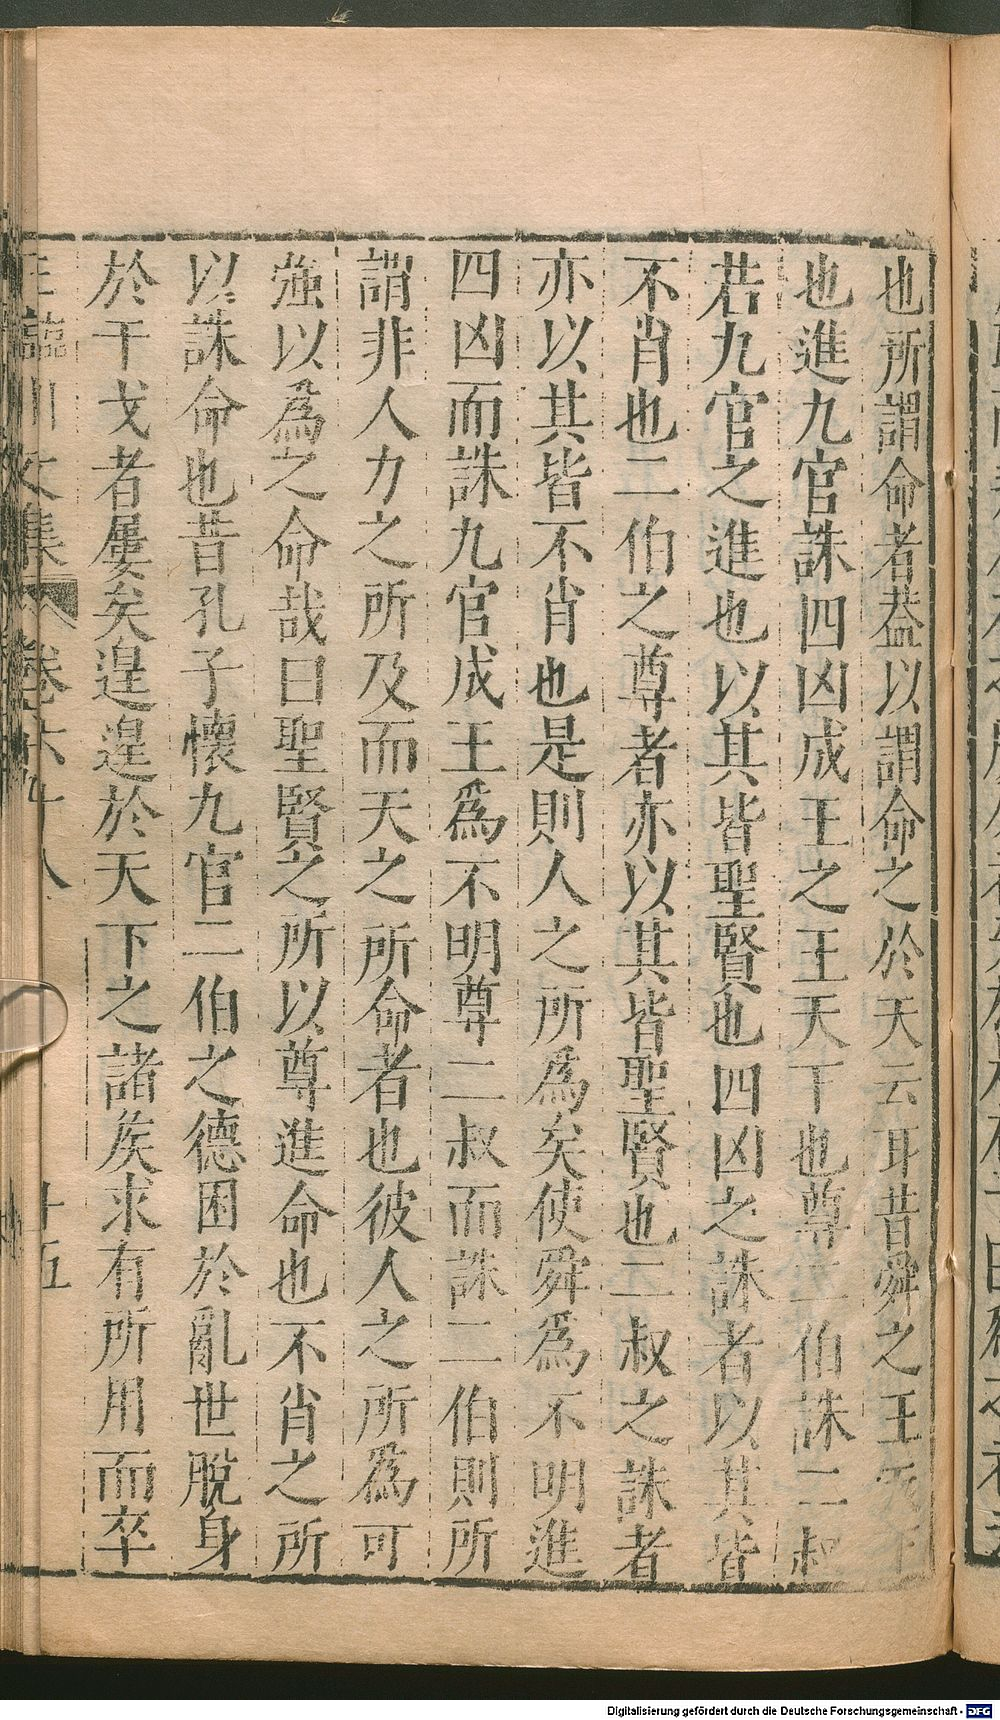 也所謂命者葢以謂命之於天云耳昔舜之王天下
也進九官誅四凶成王之王天下也尊二伯誅二叔
若九官之進也以其皆聖賢也四凶之誅者以其皆
不肖也二伯之尊者亦以其皆聖賢也二叔之誅者
亦以其皆不肖也是則人之所爲矣使舜爲不明進
四凶而誅九官成王爲不明尊二叔而誅二伯則所
謂非人力之所及而天之所命者也彼人之所爲可
強以爲之命哉曰聖賢之所以尊進命也不肖之所
以誅命也昔孔子懷九官二伯之德困於亂世脫身
於干戈者屢矣遑遑於天下之諸矦求有所用而卒
王臨川文集 卷六十八 十五
Digitalisierung gefördert durch die Deutsche Forschungsgemeinschaft - DFG